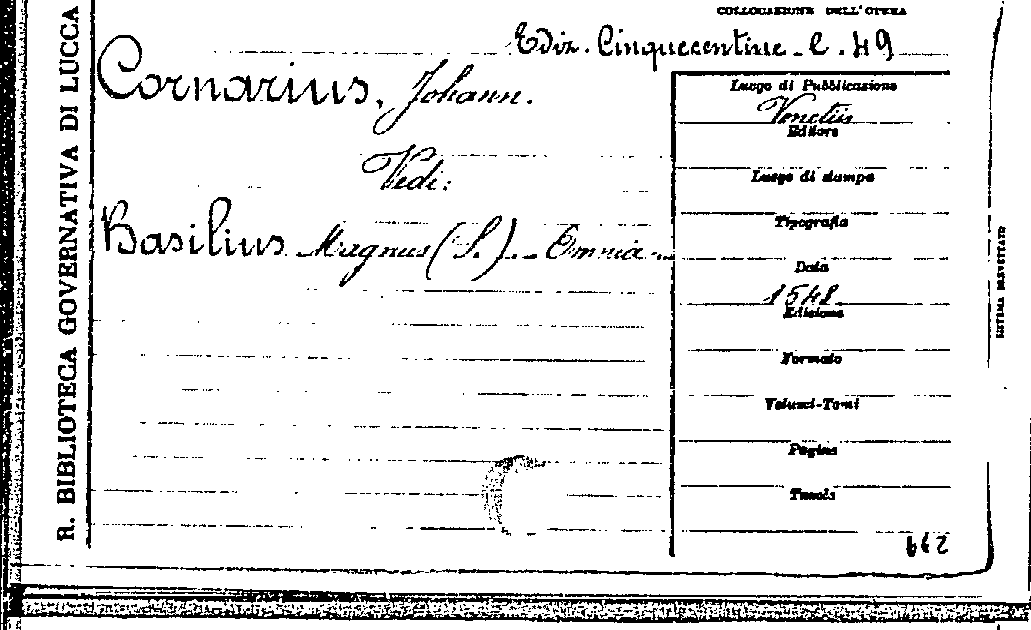 COLLOCAZIONE DELL'OPERA
Ediz. Cinquecentine - C. 49
R. BIBLIOTECA GOVERNATIVA DI LUCCA
Cornarius, Johann.
Vedi:
Basilius Magnus (S.) - Omnia...
Luogo di Pubblicazione
Venetiis
Editore
Luogo di stampa
Tipografia
Data
1548
Edizione
Formato
Volumi-Tomi
Pagine
Tavole
SISTEMA BREVETTATO